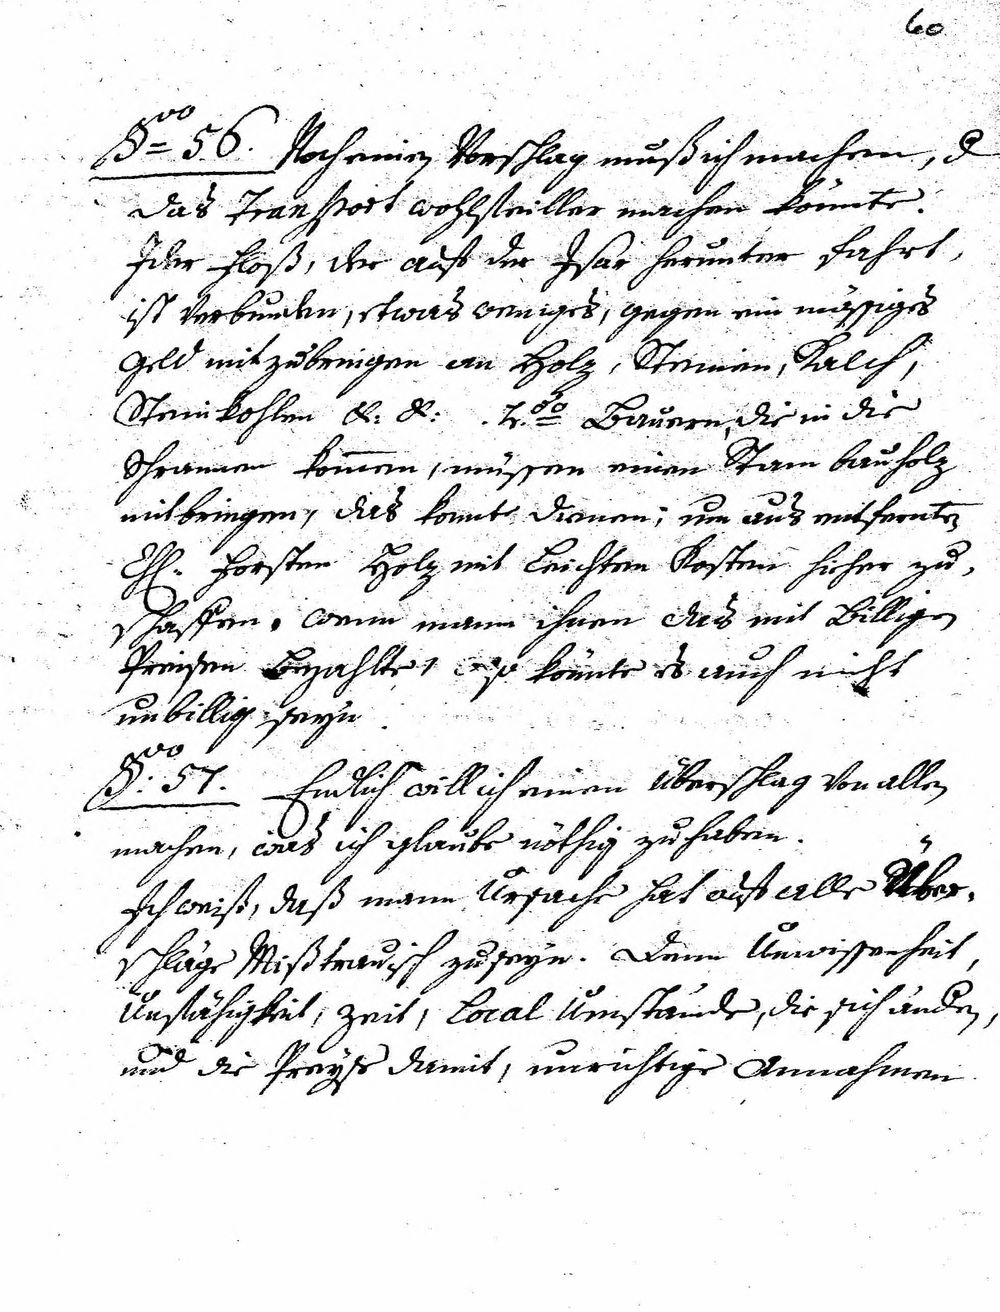 60
§00 56. Noch einen Vorschlag muß ich machen, d
das Transport wohlfeiller machen könnte.
Jder Floß, der auf der Isar herunter fahrt,
ist verbunden, etwas weniges, gegen ein mässiges
geld mitzubringen an Holz, Steinen, Kalch,
Steinkohlen &: &: Bauern, die in die
Schrannen kommen, müssen einen Stam bauholz
mitbringen, das konte dienen; um aus entfernten
Forsten Holz mit leichten Kosten hieher zu,
schaffen. wenn mann ihnen das mit Billigen
Preisen Bezahlte, so könnte es auch nicht
unbillig seyn
§00 57. Endlich will ich einen Überschlag von allen
machen, was ich glaube nöthig zu haben.
Ich weiß, daß mann Ursache hat auf alle Über,
schläge Mißtrauisch zu seyn. Denn Unwissenheit,
Unfähigkeit, Zeit, Local Umstände, die sich ändern,
und die Preyse damit, unrichtige Annahmen